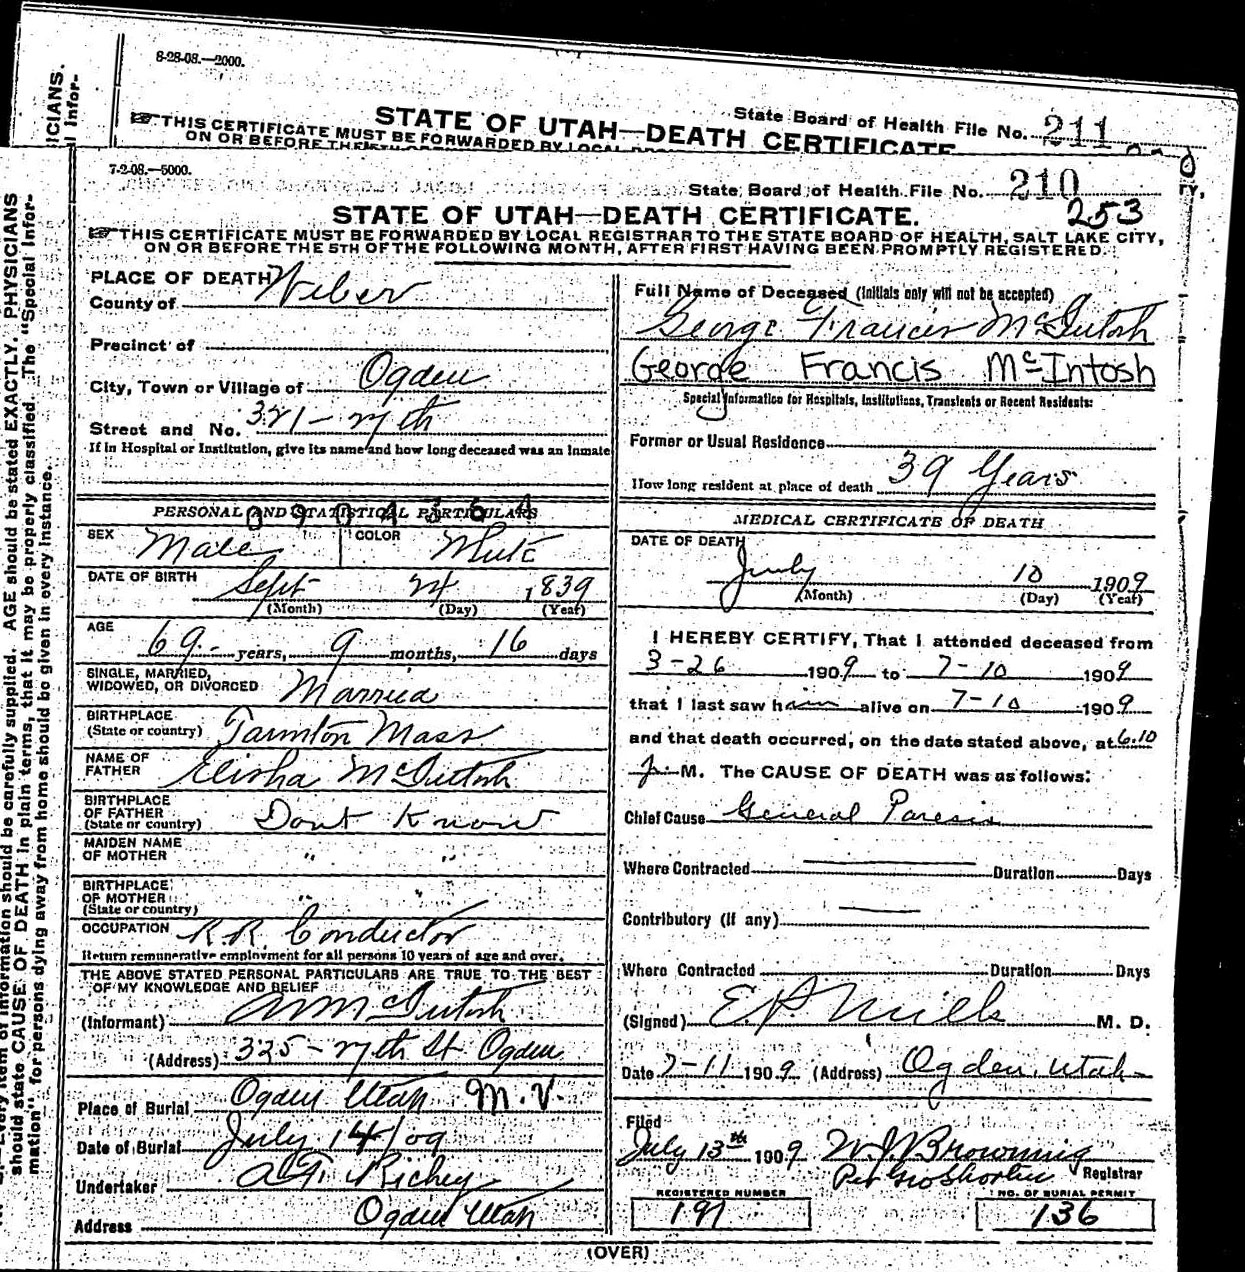 8-28-08.—2000.
State Board of Health File No. 211
STATE OF UTAH—DEATH CERTIFICATE
THIS CERTIFICATE MUST BE FORWARDED BY LOCAL
ON OR BEFORE THE
ICIANS.
l Infor-
7-2-08.—5000.
State Board of Health File No. 210
253
STATE OF UTAH—DEATH CERTIFICATE.
THIS CERTIFICATE MUST BE FORWARDED BY LOCAL REGISTRAR TO THE STATE BOARD OF HEALTH, SALT LAKE CITY,
ON OR BEFORE THE 5TH OF THE FOLLOWING MONTH, AFTER FIRST HAVING BEEN PROMPTLY REGISTERED.
PLACE OF DEATH
County of Weber
Precinct of
City, Town or Village of Ogden
Street and No. 321 - 27th
If in Hospital or Institution, give its name and how long deceased was an Inmate
0904364
PERSONAL AND STATISTICAL PARTICULARS
SEX Male COLOR White
DATE OF BIRTH Sept 24 1839
(Month) (Day) (Year)
AGE 69 years, 9 months, 16 days
SINGLE, MARRIED,
WIDOWED, OR DIVORCED Married
BIRTHPLACE
(State or country) Taunton Mass
NAME OF
FATHER Elisha McIntosh
BIRTHPLACE
OF FATHER
(State or country) Dont Know
MAIDEN NAME
OF MOTHER " "
BIRTHPLACE
OF MOTHER
(State or country) " "
OCCUPATION R.R. Conductor
Return remunerative employment for all persons 10 years of age and over.
THE ABOVE STATED PERSONAL PARTICULARS ARE TRUE TO THE BEST
OF MY KNOWLEDGE AND BELIEF
(Informant) McIntosh
(Address) 325 - 27th St Ogden
Place of Burial Ogden Utah M.V.
Date of Burial July 14/09
Undertaker Richey
Address Ogden Utah
Full Name of Deceased (Initials only will not be accepted)
George Francis McIntosh
George Francis McIntosh
Special Information for Hospitals, Institutions, Transients or Recent Residents:
Former or Usual Residence
How long resident at place of death 39 Years
MEDICAL CERTIFICATE OF DEATH
DATE OF DEATH
July 10 1909
(Month) (Day) (Year)
I HEREBY CERTIFY, That I attended deceased from
3-26 1909 to 7-10 1909
that I last saw him alive on 7-10 1909
and that death occurred, on the date stated above, at 6.10
p. M. The CAUSE OF DEATH was as follows:
Chief Cause General Paresis
Where Contracted Duration Days
Contributory (if any)
Where Contracted Duration Days
(Signed) E.P. Mills M. D.
Date 7-11 1909 (Address) Ogden, Utah
Filed
July 13th 1909 W.J. Browning
Per Geo Shorten Registrar
REGISTERED NUMBER NO. OF BURIAL PERMIT
191 136
(OVER)
Every item of information should be carefully supplied. AGE should be stated EXACTLY. PHYSICIANS
should state CAUSE OF DEATH in plain terms, that it may be properly classified. The "Special Infor-
mation" for persons dying away from home should be given in every instance.